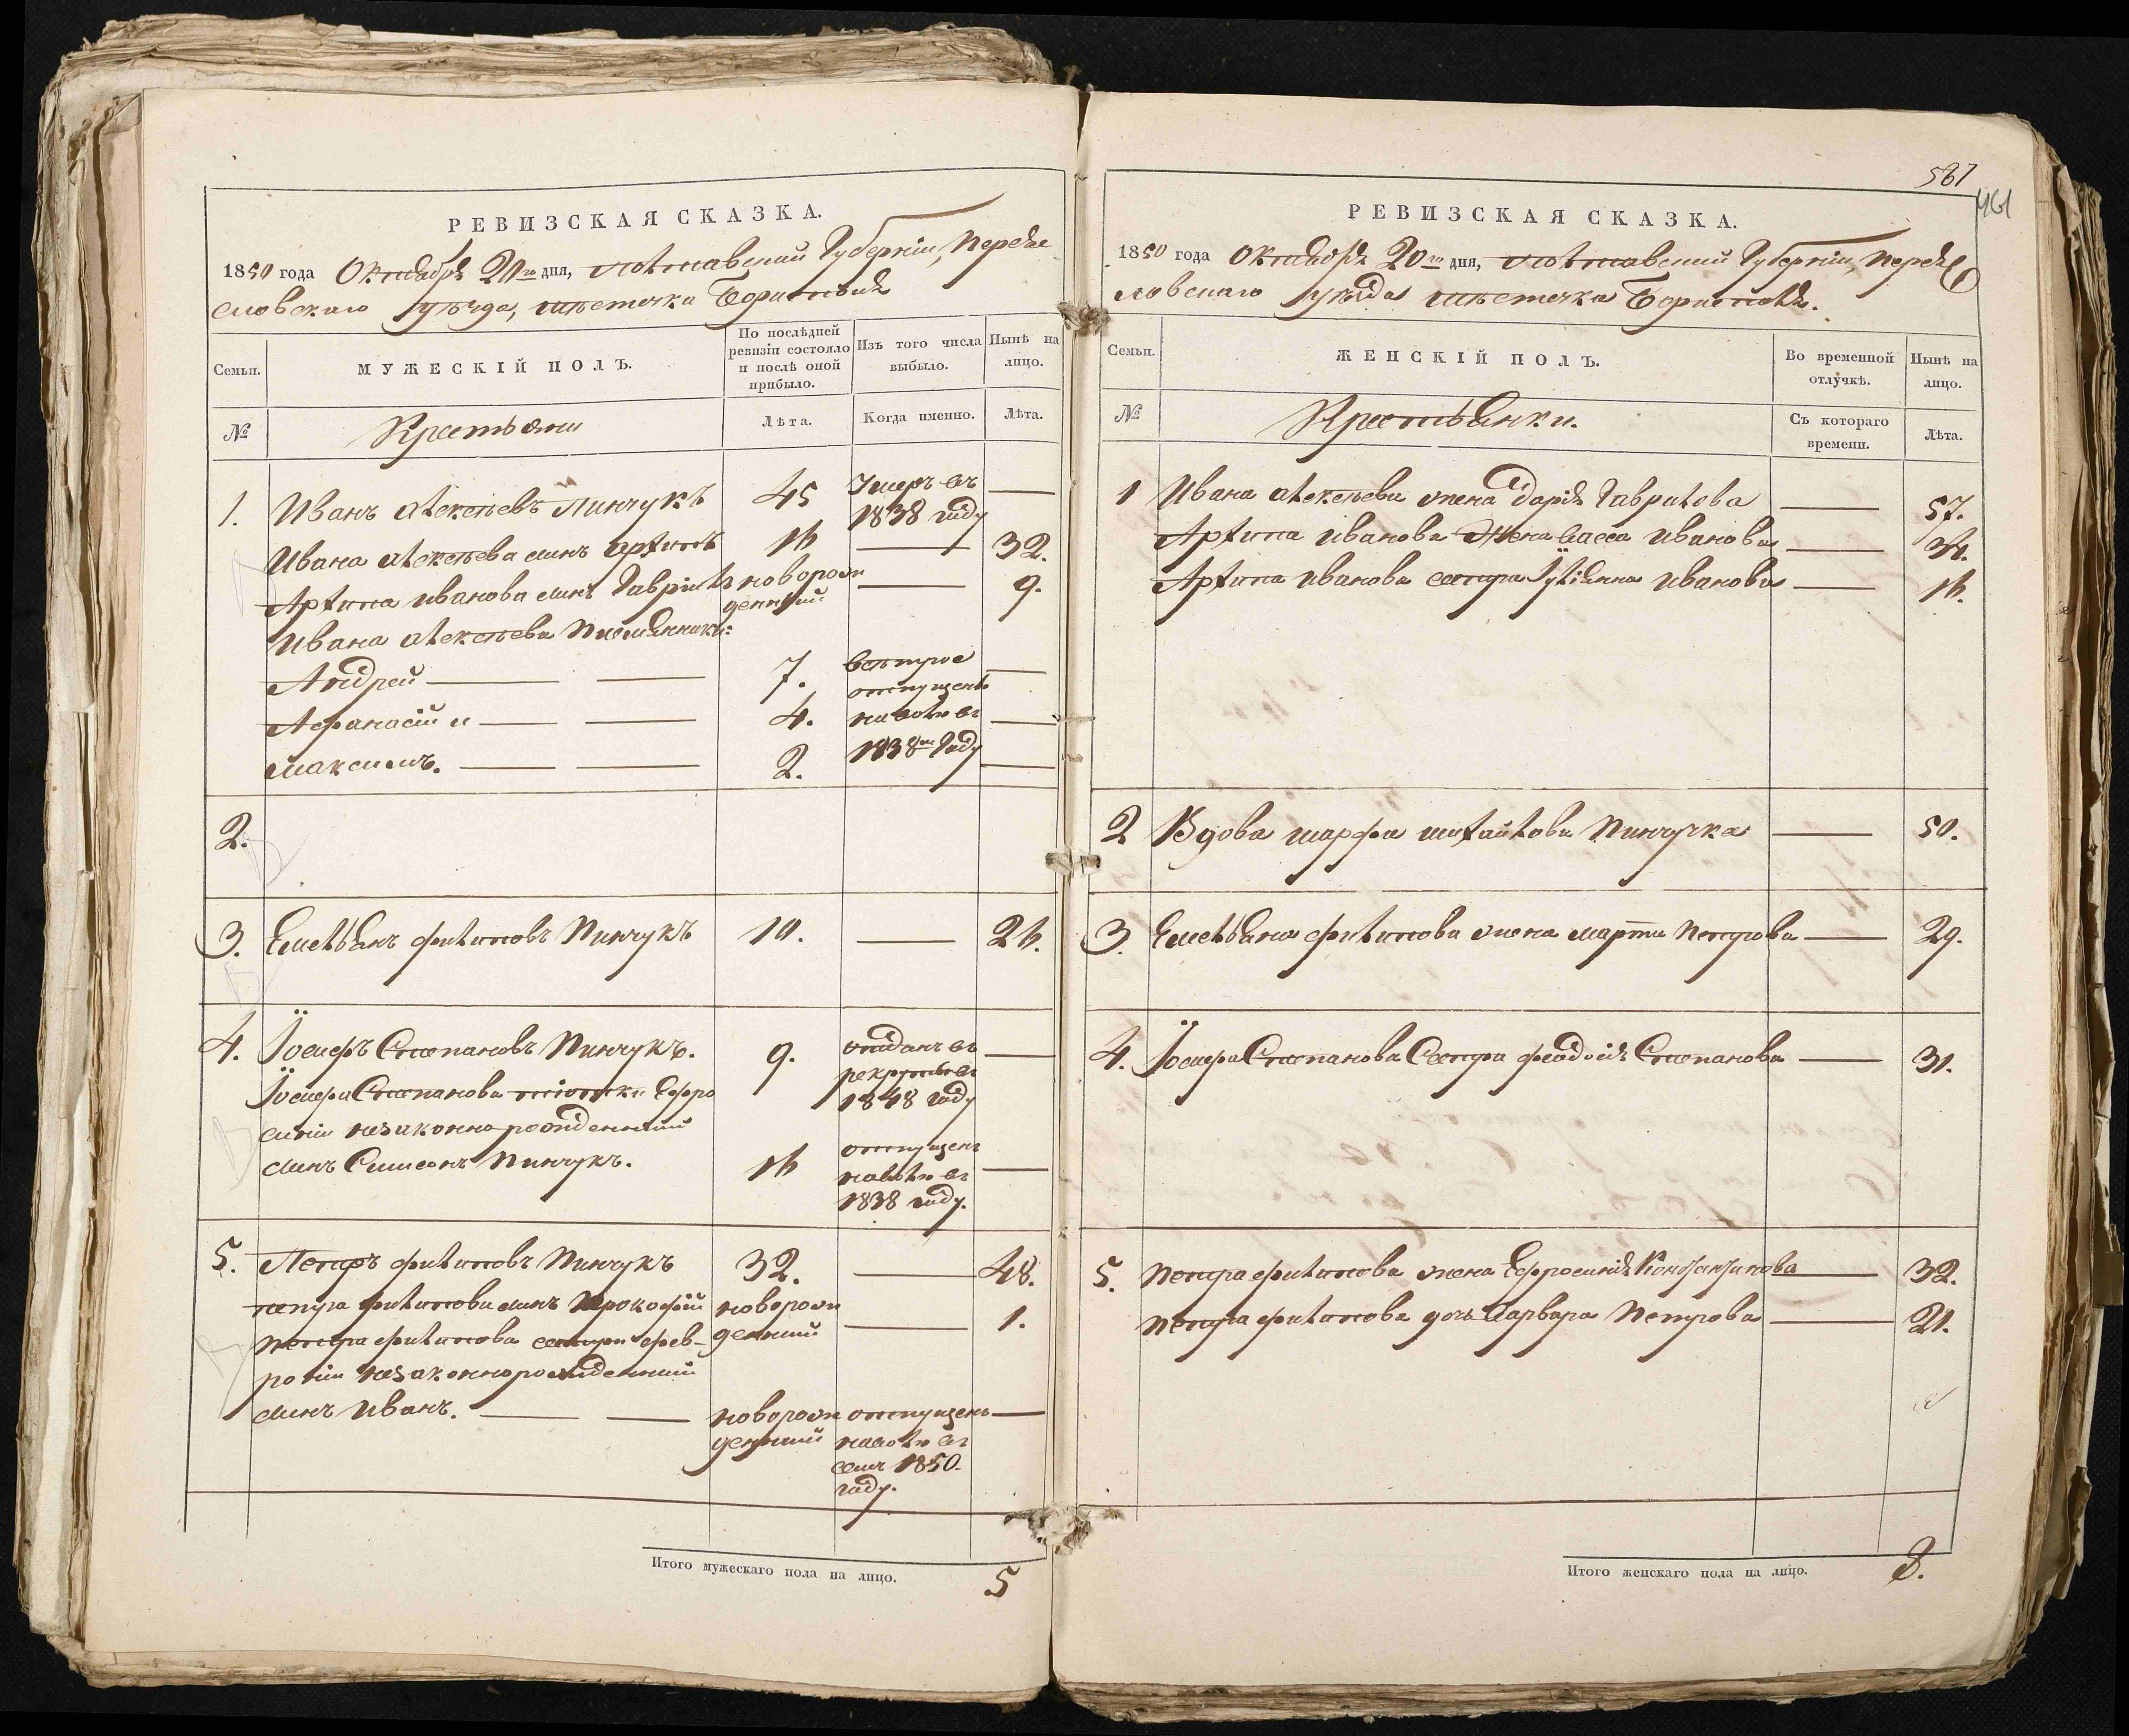 РЕВИЗСКАЯ СКАЗКА.
1850 года Октября 20го дня, Полтавской Губерніи, Перея
словскаго уѣзда, мѣстечка Борисполя
Семьи.
МУЖЕСКІЙ ПОЛЪ.
По послѣдней ревизіи состояло и послѣ оной прибыло.
Изъ того числа выбыло.
Нынѣ на лицо.
№
Крестьяни
Лѣта.
Когда именно.
Лѣта.
1. Иванъ Алексѣевъ Пинчукъ 45 Умеръ въ 1838 году —
Ивана Алексѣева сынъ Архипъ 16 — 32.
Архипа Иванова сынъ Гавріилъ новорожденный — 9.
Ивана Алексѣева Племянники:
Андрей — — 7. —
Афанасій и — — 4. —
Максимъ. — — 2. —
отпущены
на волю въ
1838м году
2.
3. Емельянъ Филиповъ Пинчукъ 10. — 26.
4. Іосифъ Степановъ Пинчукъ. 9. отданъ въ рекруты въ 1848 году —
Іосифа Степанова тіотки Ефро
синіи незаконнорожденный
сынъ Симеонъ Пинчукъ. 16 отпущенъ на волю въ 1838 году. —
5. Петръ Филиповъ Пинчукъ 32. — 48.
Петра Филипова сынъ Прокофій новорожденный — 1.
Петра Филипова сестры Фев-
роніи незаконнорожденный
сынъ Иванъ. — — новорожденный отпущенъ на волю въ семъ 1850. году. —
Итого мужескаго пола на лицо. 5
561
461
РЕВИЗСКАЯ СКАЗКА.
1850 года Октября 20го дня, Полтавской Губерніи, Перея
словскаго уѣзда мѣстечка Борисполя.
Семьи.
ЖЕНСКІЙ ПОЛЪ.
Во временной отлучкѣ.
Нынѣ на лицо.
№
Крестьянки.
Съ котораго времени.
Лѣта.
1 Ивана Алексѣева жена Дарія Гаврилова — 57.
Архипа Иванова жена Васса Иванова —
Архипа Иванова сестра Уліянна Иванова — 16.
2 Вдова Марфа Михайлова Пинчучка — 50.
3. Емельяна Филипова жена Марта Петрова — 29.
4. Іосифа Степанова Сестра Феодосія Степанова — 31.
5. Петра Филипова жена Ефросинія Константинова — 32.
Петра Филипова дочь Варвара Петрова — 21.
Итого женскаго пола на лицо. 8.